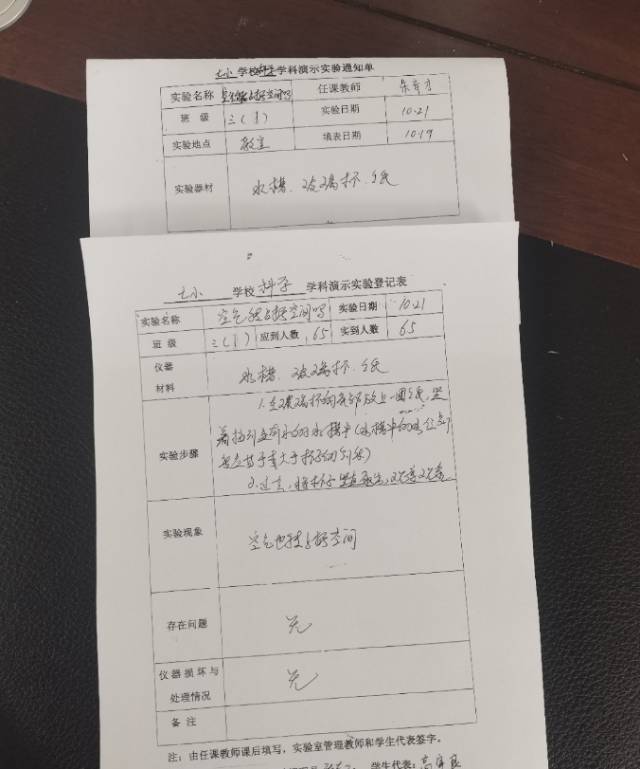 七小 学校 科学 学科演示实验通知单
实验名称 空气能占据空间吗 任课教师
班 级 三(1) 实验日期 10.21
实验地点 教室 填表日期 10.19
实验器材 水槽、玻璃杯、纸
七小 学校 科学 学科演示实验登记表
实验名称 空气能占据空间吗 实验日期 10.21
班 级 三(1) 应到人数 65 实到人数 65
仪器
材料 水槽、玻璃杯、纸
1.在玻璃杯的底部放上一团纸,竖
着 到 有水的水槽中(水槽中的水位
要 等于或大于杯子的 )
实验步骤
2.过 ,将杯子竖直 ,观察
实验现象 空气也能占据空间
存在问题 无
仪器损坏与
处理情况 无
备 注
注:由任课教师课后填写,实验室管理教师和学生代表签字。
学生代表: